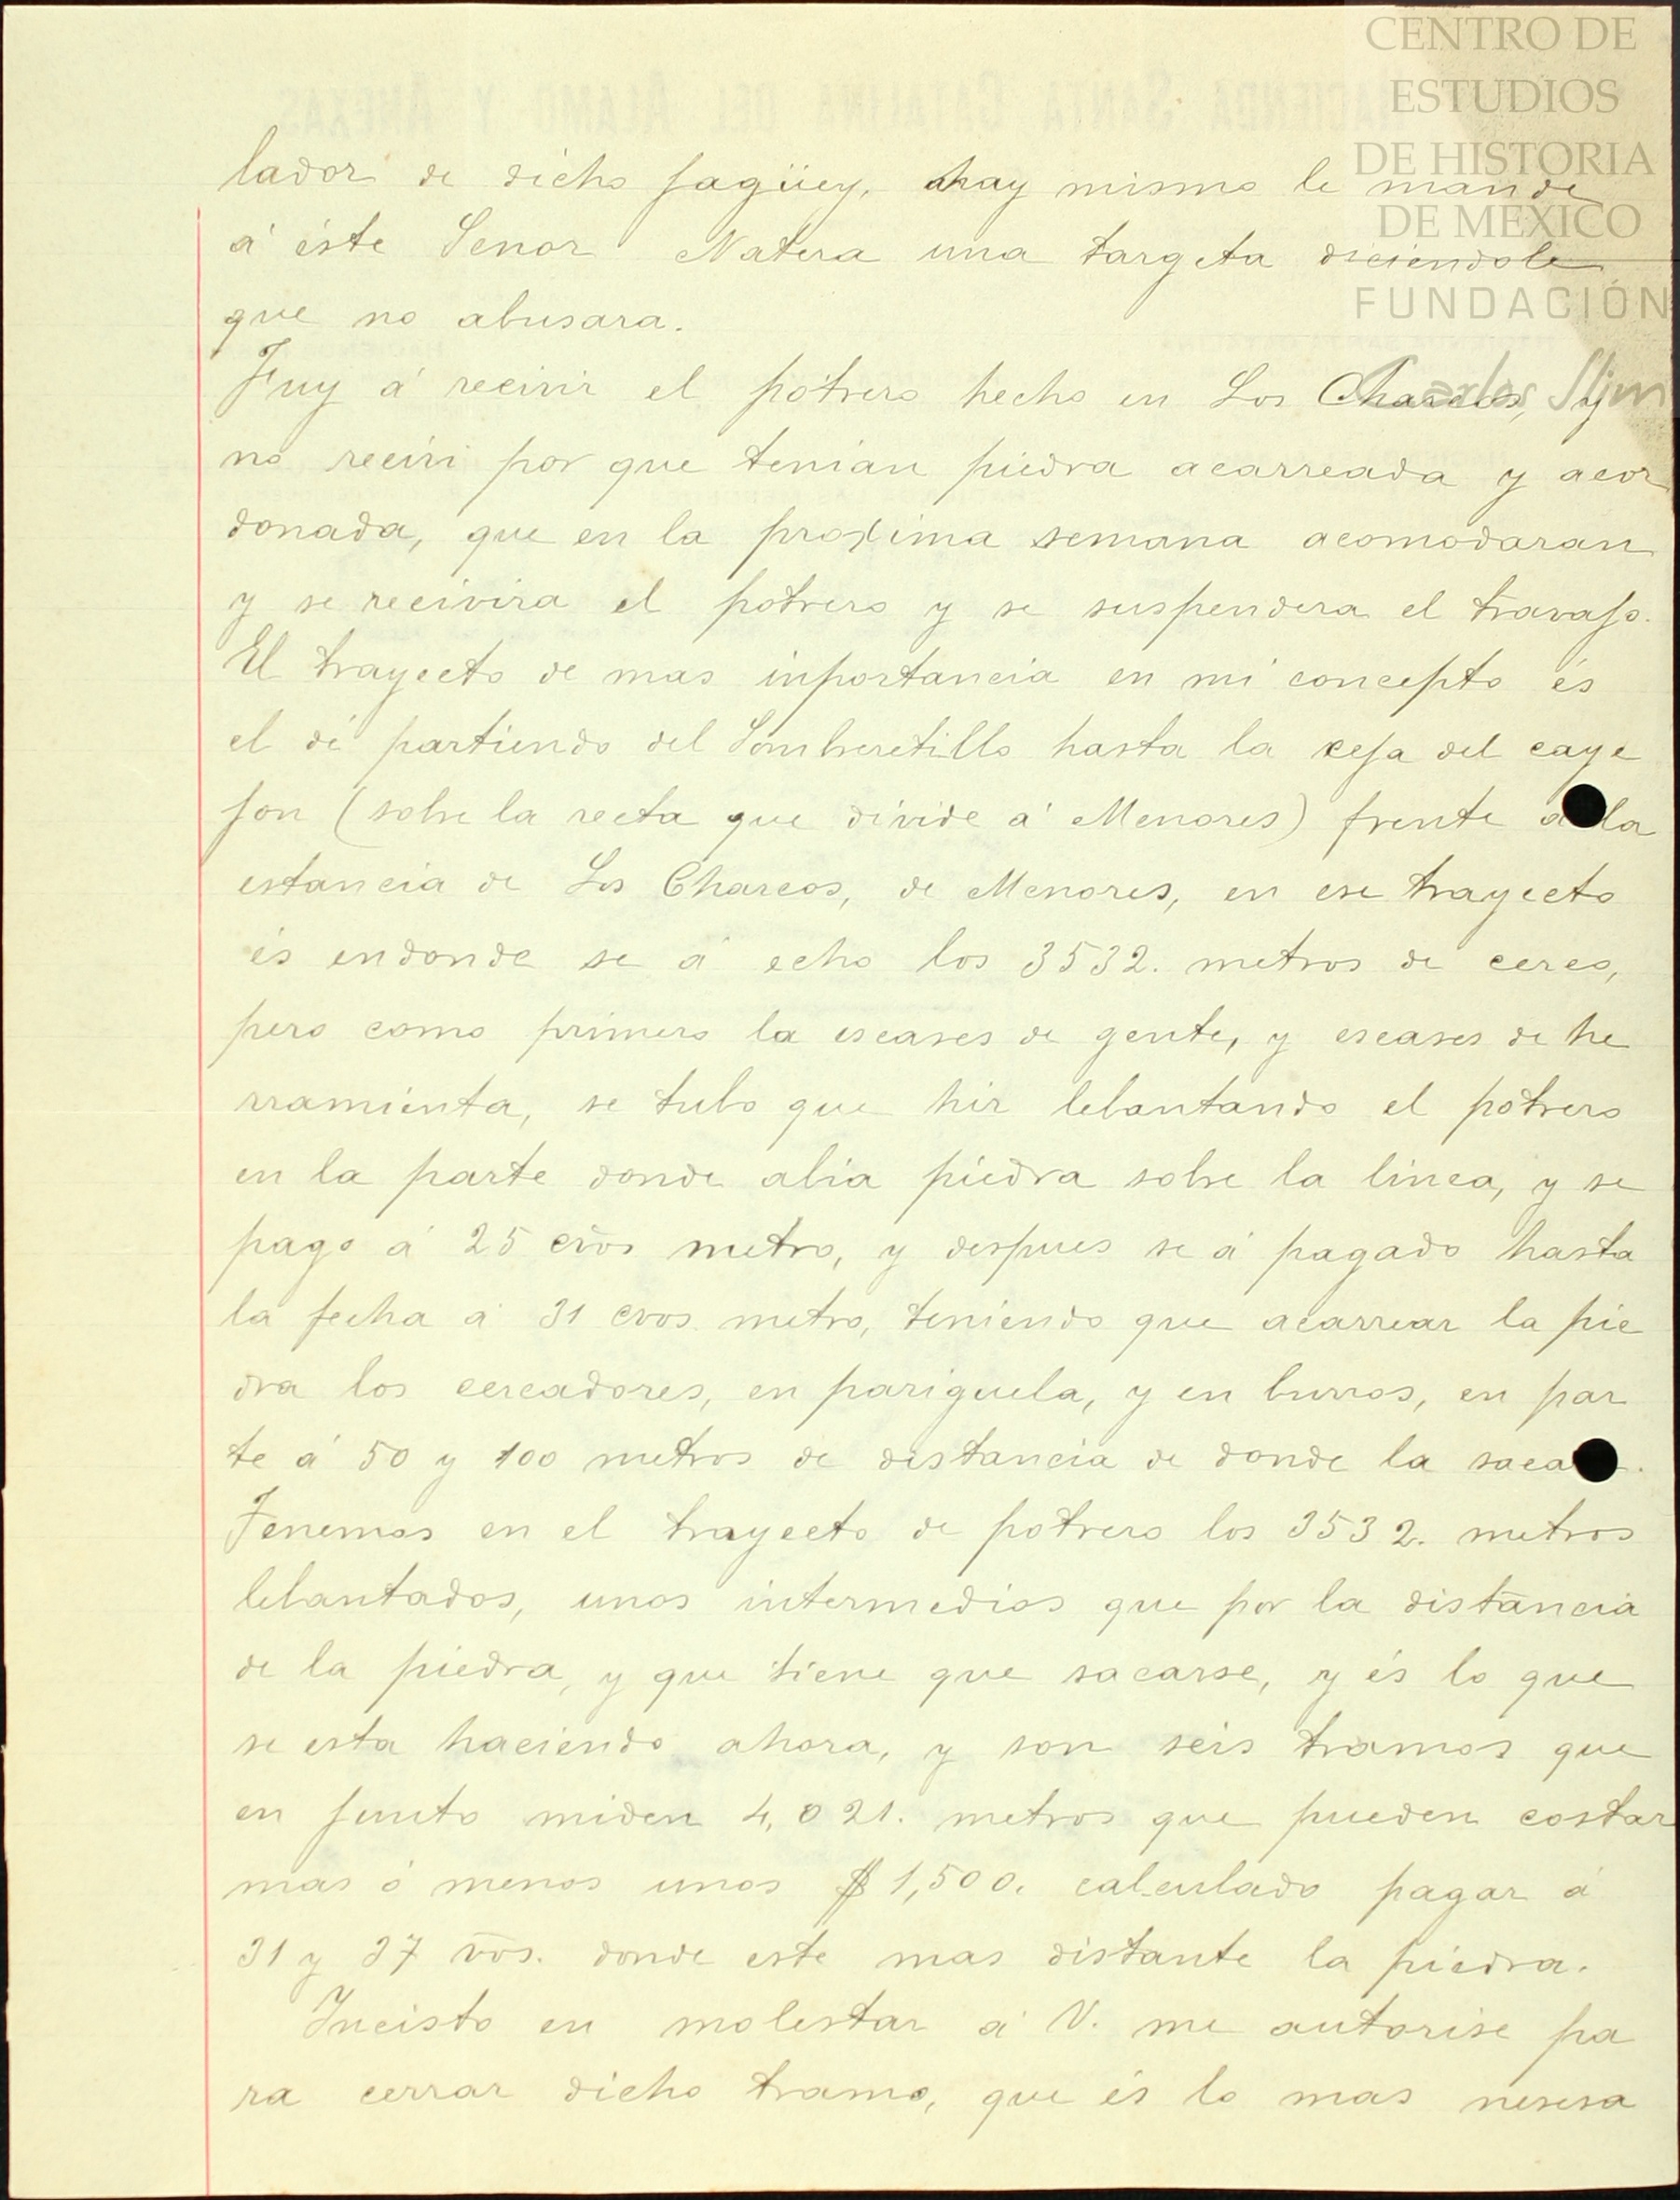 CENTRO DE
ESTUDIOS
DE HISTORIA
DE MÉXICO
FUNDACIÓN
Carlos Slim
HACIENDA SANTA CATALINA DEL ALAMO Y ANEXAS
lador de dicho jagüey, hay mismo le mande
á éste Senor Natera una targeta diciendole
que no abusara.
Fuy á recivir el potrero hecho en Los Charcos, y
no reciví por que tenian piedra acarreada y acor
donada, que en la proxima semana acomodaran
y se recivira el potrero y se suspendera el travajo.
El trayecto de mas inportancia en mi concepto és
el dé partiendo del Sombretillo hasta la ceja del caye
jon (sobre la recta que divide á Menores) frente a la
estancia de Los Charcos, de Menores, en ese trayecto
és endonde se á echo los 3532. metros de cerco,
pero como primero la escases de gente, y escases de he
rramienta, se tubo que hir lebantando el potrero
en la parte donde abia piedra sobre la linea, y se
pago á 25 cvos metro, y despues se á pagado hasta
la fecha á 31 cvos metro, teniendo que acarrear la pie
dra los cercadores, en pariguela, y en burros, en par
te á 50 y 100 metros de distancia de donde la saca
Tenemos en el trayecto de potrero los 3532. metros
lebantados, unos intermedios que por la distancia
de la piedra, y que tiene que sacarse, y és lo que
se esta haciendo ahora, y son seis tramos que
en junto miden 4,021. metros que pueden costar
mas ó menos unos $1,500. calculado pagar á
31 y 37 vos. donde este mas distante la piedra.
Incisto en molestar á V. me autorise pa
ra cerrar dicho tramo, que és lo mas nesesa